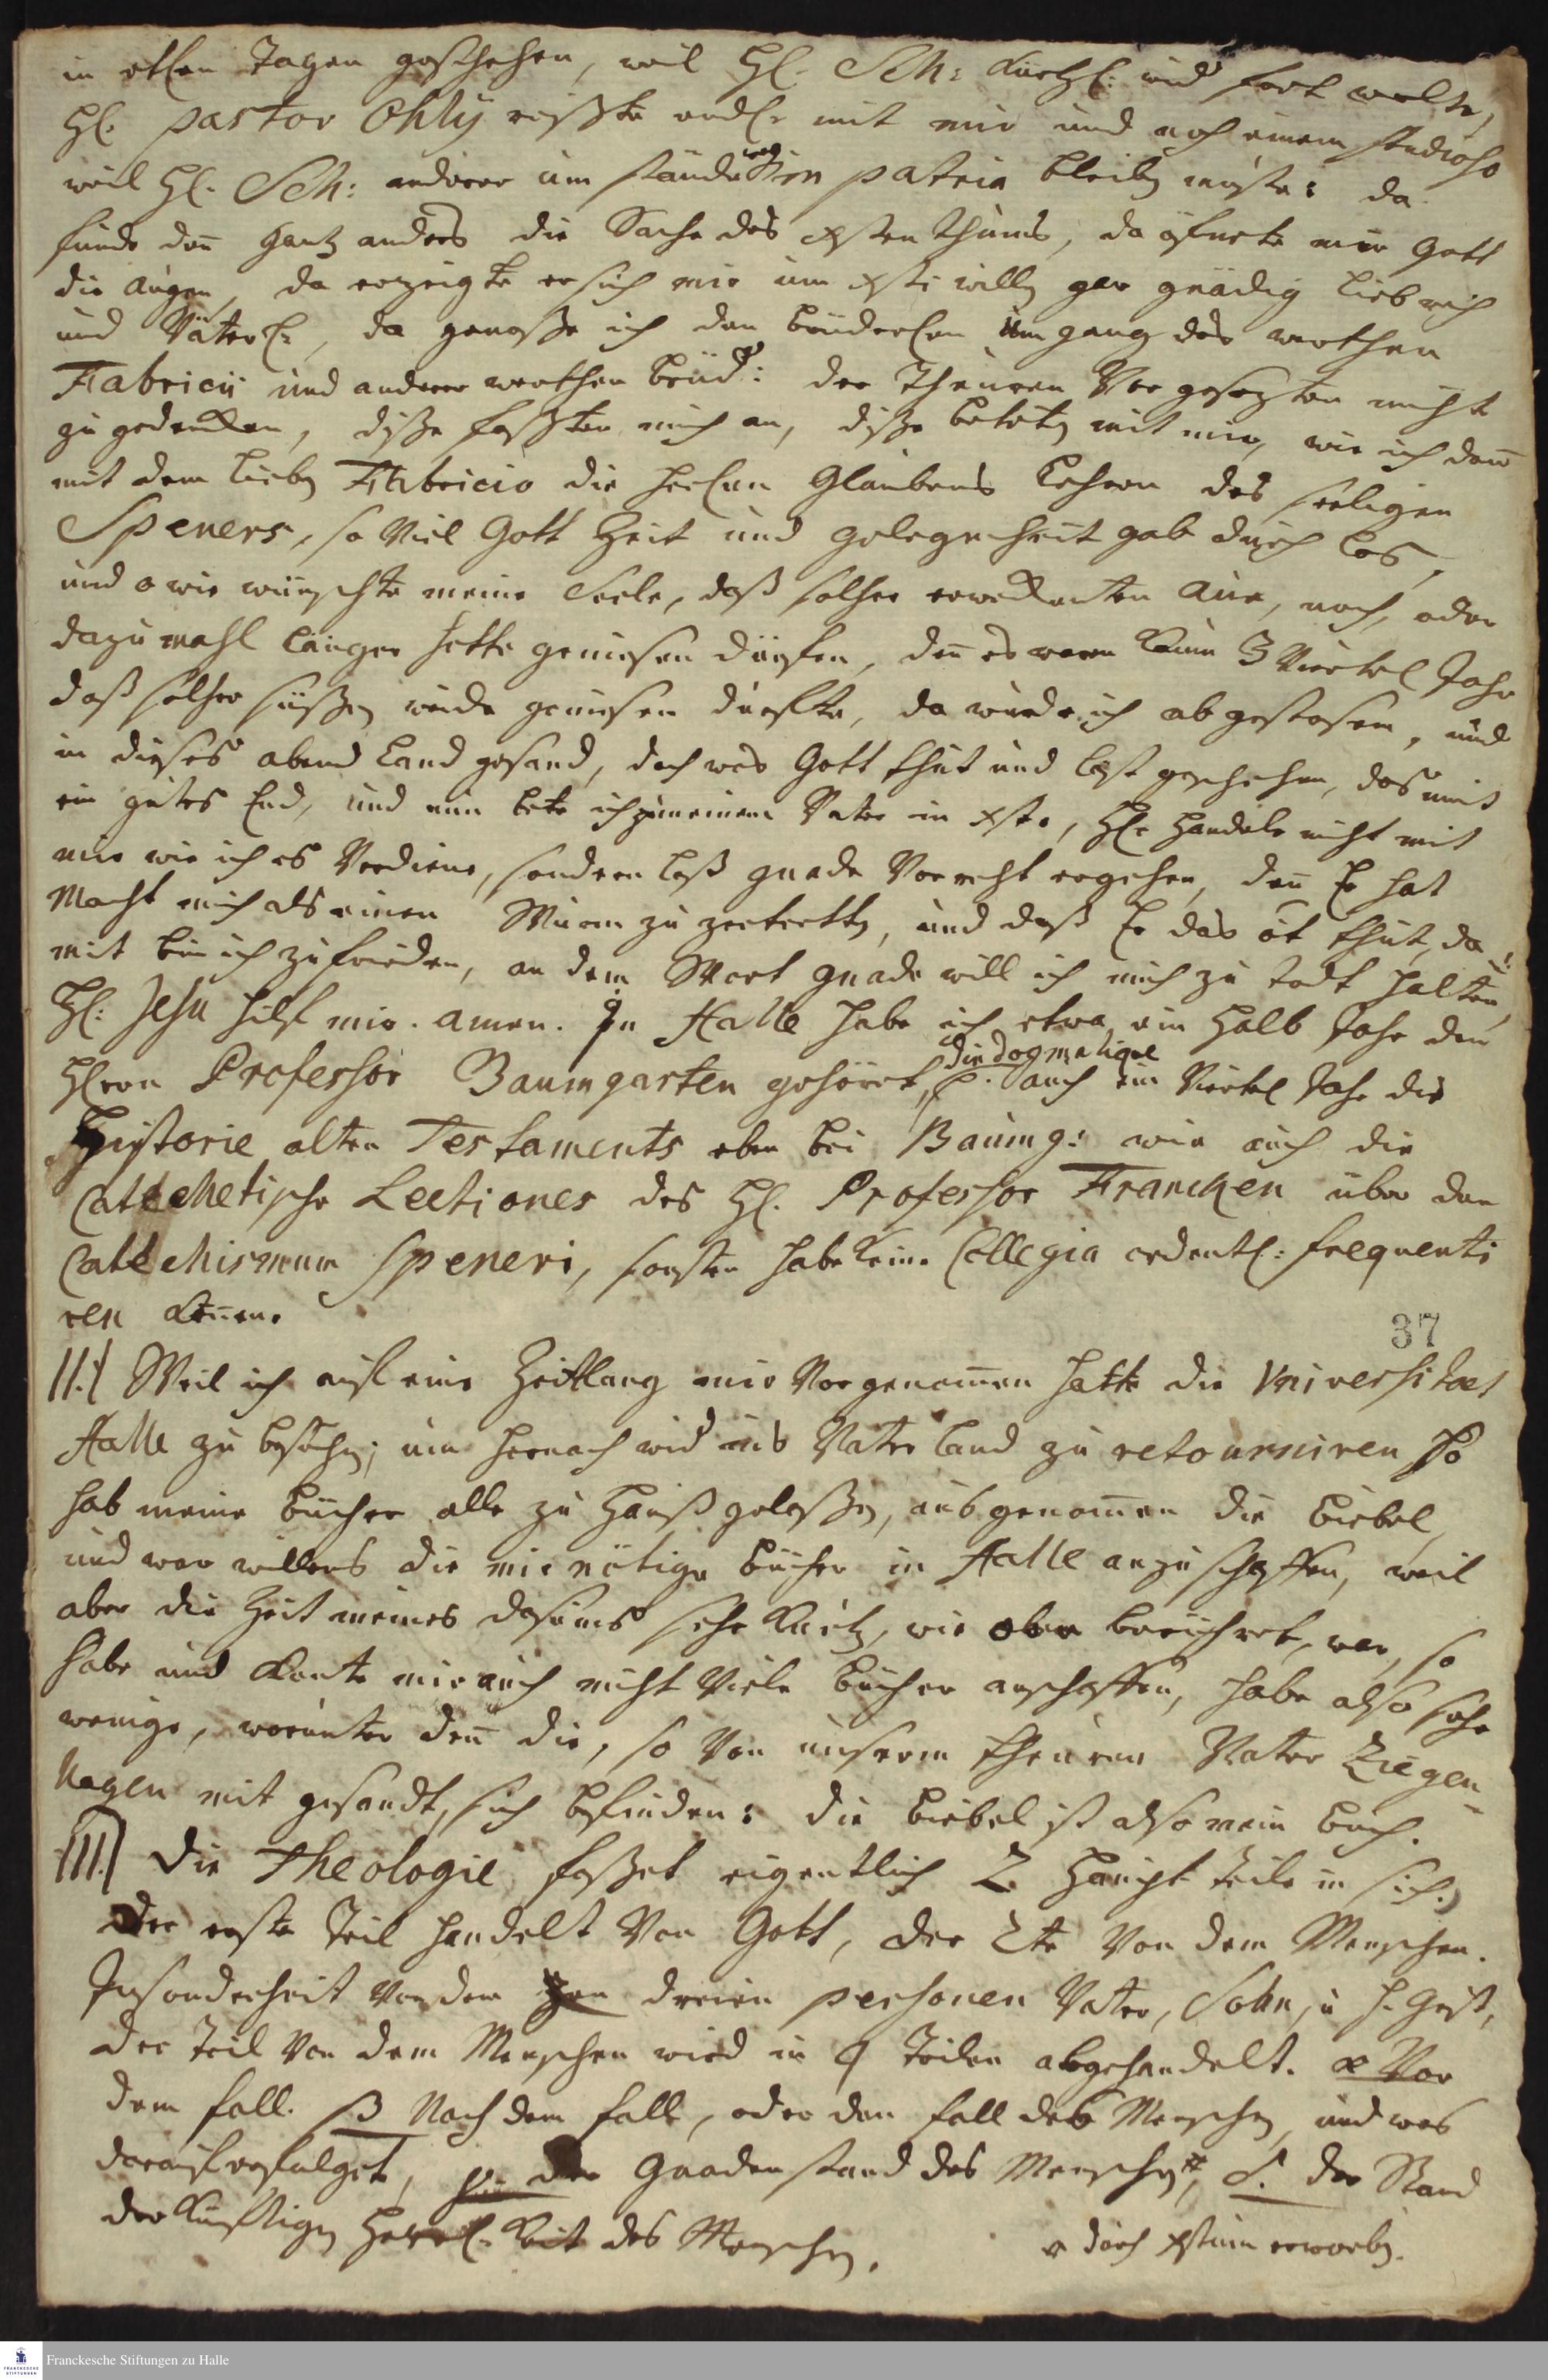 in etlen Tagen geschehen, weil Hl. Sch: kurtzl: wid fort wolte,
Hl. Pastor Ohly reißte endl. mit mir und noch einem studioso
weil Hl. Sch: anderer um stände weg in patria bleiben muste: da
funde den gantz anders die Sache des xstenthums, da öfnete mir Gott
die Augen, da erzeigte er sich mir um xsti willen gar gnädig liebreich
und Väterl:, da genosse ich den brüderlen Umgang des werthen
Fabricii und anderer werthen brüd: der Theuren Vorgesezten nicht
zu gedenken, diße faßten mich an, diße beteten mit mir, wie ich dan
mit dem lieben Fabricio die herlen Glaubens Lehren des seeligen
Speners, so Viel Gott Zeit und gelegenheit gab durch las,
und o wie wünschte meine Seele, daß solcher erweckenten Aue, noch, oder
dazumahl länger hette geniesen dürfen, den es waren kaum 3 Viertel Jahr
daß solcher süßen weide geniesen durfte, da wurde ich abgestosen, und
in dieses abend Land gesand, doch was Gott thut und läst geschehen, das nimt
ein gutes End, und nun bete ich zu meinem Vater in xsto, Hl. Handele nicht mit
mir wie ich es Verdiene, sondern laß gnade Vor recht ergehen, den Er hat
Macht mich als einen Wurm zu zertretten, und daß Er das nit thut, da-
mit bin ich zufrieden, an dem Wort gnade will ich mich zu todt halten,
Hl: Jesu hilf mir. amen. In Halle habe ich etwa ein halb Jahr den
Hlern Professor Baumgarten gehöret, die dogmatique auch ein Viertel Jahr die
Historie alten Testaments eben bei Baumg: wie auch die
Catechetische Lectiones des Hl. Professor Francken über den
Catechismum Speneri, sonsten habe keine Collegia ordentl: frequenti
ren können.
37
II.) Weil ich auf eine Zeitlang mir Vorgenommen hatte die Universitaet
Halle zu besuchen; um hernach wid ins Vaterland zu retourniren so
hab meine bücher alle zu Hauß gelaßen, ausgenommen die biebel,
und war willens die mir nötige bücher in Halle anzuschaffen, weil
aber die Zeit meines daseins sehr kurtz, wie oben berühret, war, so
habe und konte mir auch nicht Viele bücher anschaffen, habe also sehr
wenige, worunter den die, so Von unserm theuren Vater Ziegen-
hagen mit gesandt, sich befinden: die biebel ist also mein buch.
III.) Die Theologie fasset eigentlich 2 Haupt teile in sich.
Der erste Teil handelt Von Gott, der 2te Von dem Menschen.
Insonderheit Von den dreien personen Vater, Sohn, u. h. Geist,
der Teil Von dem Menschen wird in 4 Teilen abgehandelt. α Vor
dem fall. β Nach dem falle, oder den fall des Menschen und was
darauf erfolget, γ. der Gnadenstand des Menschen #, δ. der Stand
der künftigen Herrl. keit des Menschen.
# durch xstum erworben.
Franckesche Stiftungen zu Halle